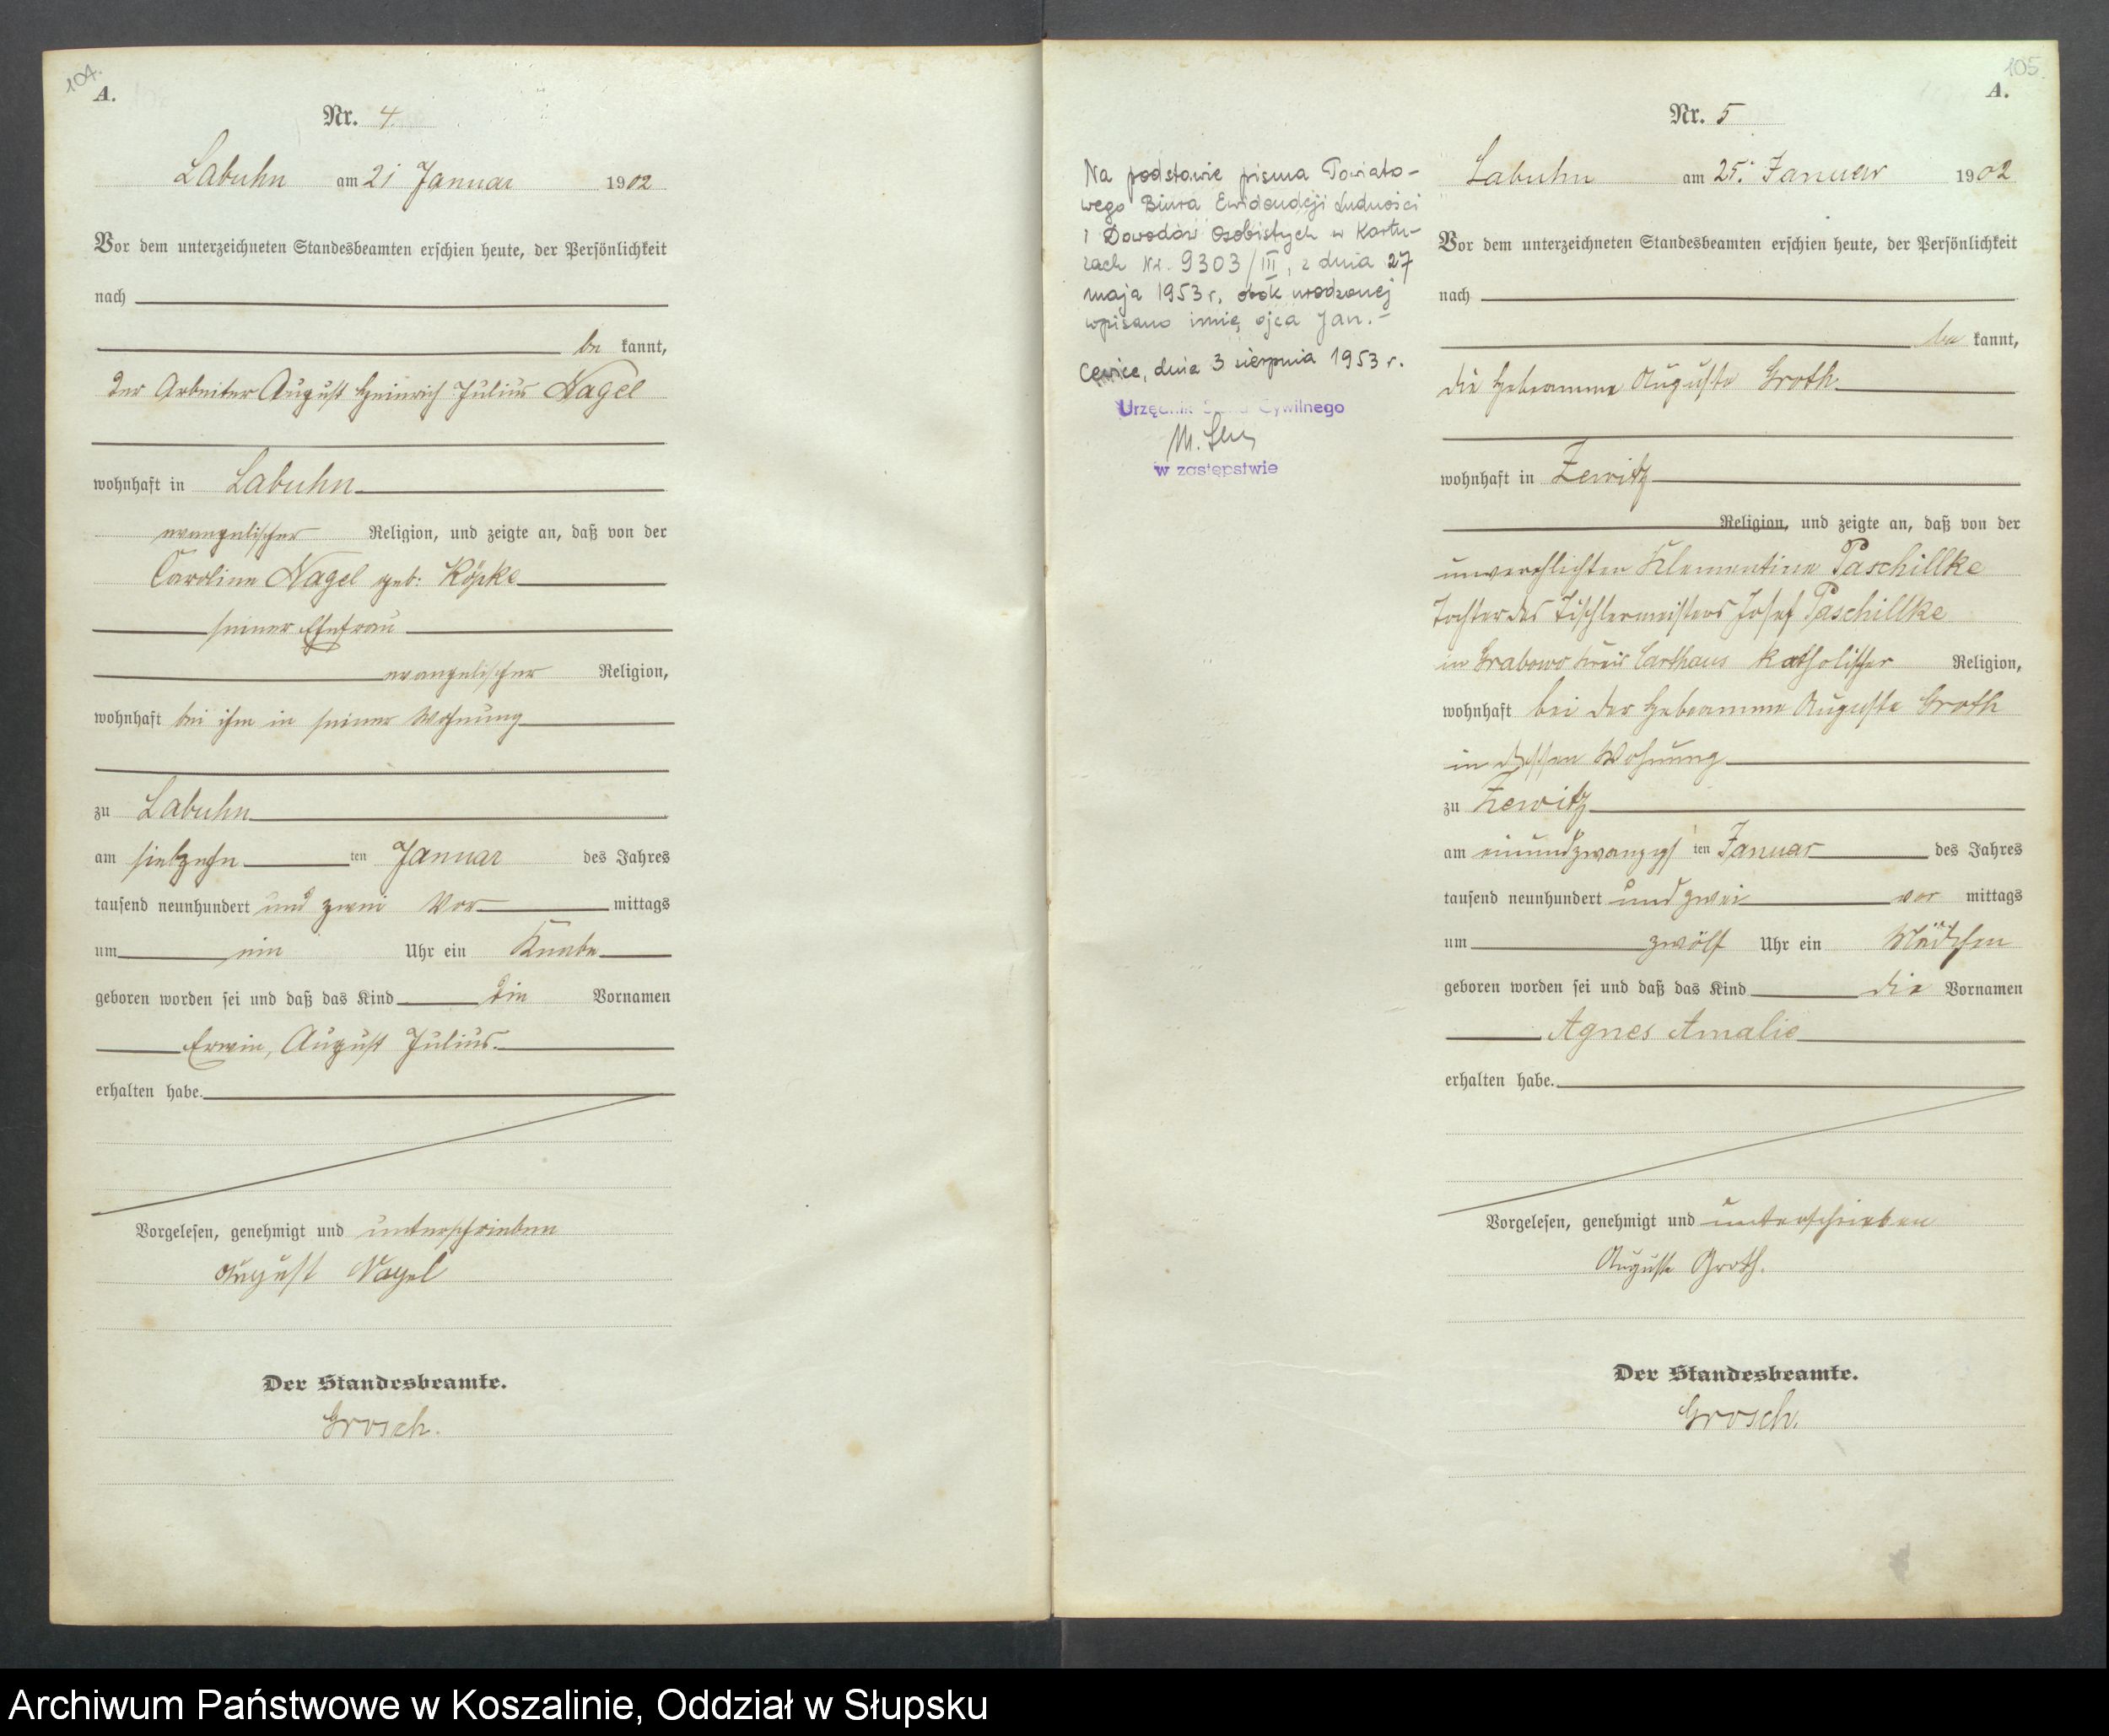 104.
A.
Nr. 4.
Labuhn am 21 Januar 1902
Vor dem unterzeichneten Standesbeamten erschien heute, der Persönlichkeit
nach
be kannt,
der Arbeiter August Heinrich Julius Nagel
wohnhaft in Labuhn
evangelischer Religion, und zeigte an, daß von der
Caroline Nagel geb: Köpke
seiner Ehefrau
evangelischer Religion,
wohnhaft bei ihm in seiner Wohnung
zu Labuhn
am siebzehn ten Januar des Jahres
tausend neunhundert und zwei Vor mittags
um ein Uhr ein Knabe
geboren worden sei und daß das Kind die Vornamen
Erwin, August Julius.
erhalten habe.
Vorgelesen, genehmigt und unterschrieben
August Nagel
Der Standesbeamte.
Grosch.
105.
A.
Nr. 5
Na podstawie pisma Powiato-
wego Biura Ewidencji Ludności
i Dowodów Osobistych w Kartu-
zach Nr. 9303/III, z dnia 27
maja 1953 r. obok urodzonej
wpisano imię ojca Jan.-
Cewice, dnia 3 sierpnia 1953 r.
Urzędnik Stanu Cywilnego
w zastępstwie
Labuhn am 25. Januar 1902
Vor dem unterzeichneten Standesbeamten erschien heute, der Persönlichkeit
nach
be kannt,
die Hebeamme Auguste Groth
wohnhaft in Zewitz
Religion, und zeigte an, daß von der
unverehlichten Klementine Paschillke
Tochter des Tischlermeisters Josef Paschillke
in Grabowo Kreis Carthaus katholischer Religion,
wohnhaft bei der Hebeamme Auguste Groth
in dessen Wohnung
zu Zewitz
am einundzwanzigs ten Januar des Jahres
tausend neunhundert und zwei vor mittags
um zwölf Uhr ein Mädchen
geboren worden sei und daß das Kind die Vornamen
Agnes Amalie
erhalten habe.
Vorgelesen, genehmigt und unterschrieben
Auguste Groth.
Der Standesbeamte.
Grosch.
Archiwum Państwowe w Koszalinie, Oddział w Słupsku